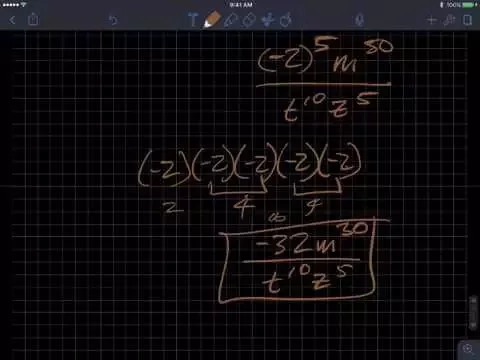 9:41 AM
100%
(-2)⁵ m³⁰
t¹⁰ z⁵
(-2)(-2)(-2)(-2)(-2)
2 4 4
-32m³⁰
t¹⁰ z⁵